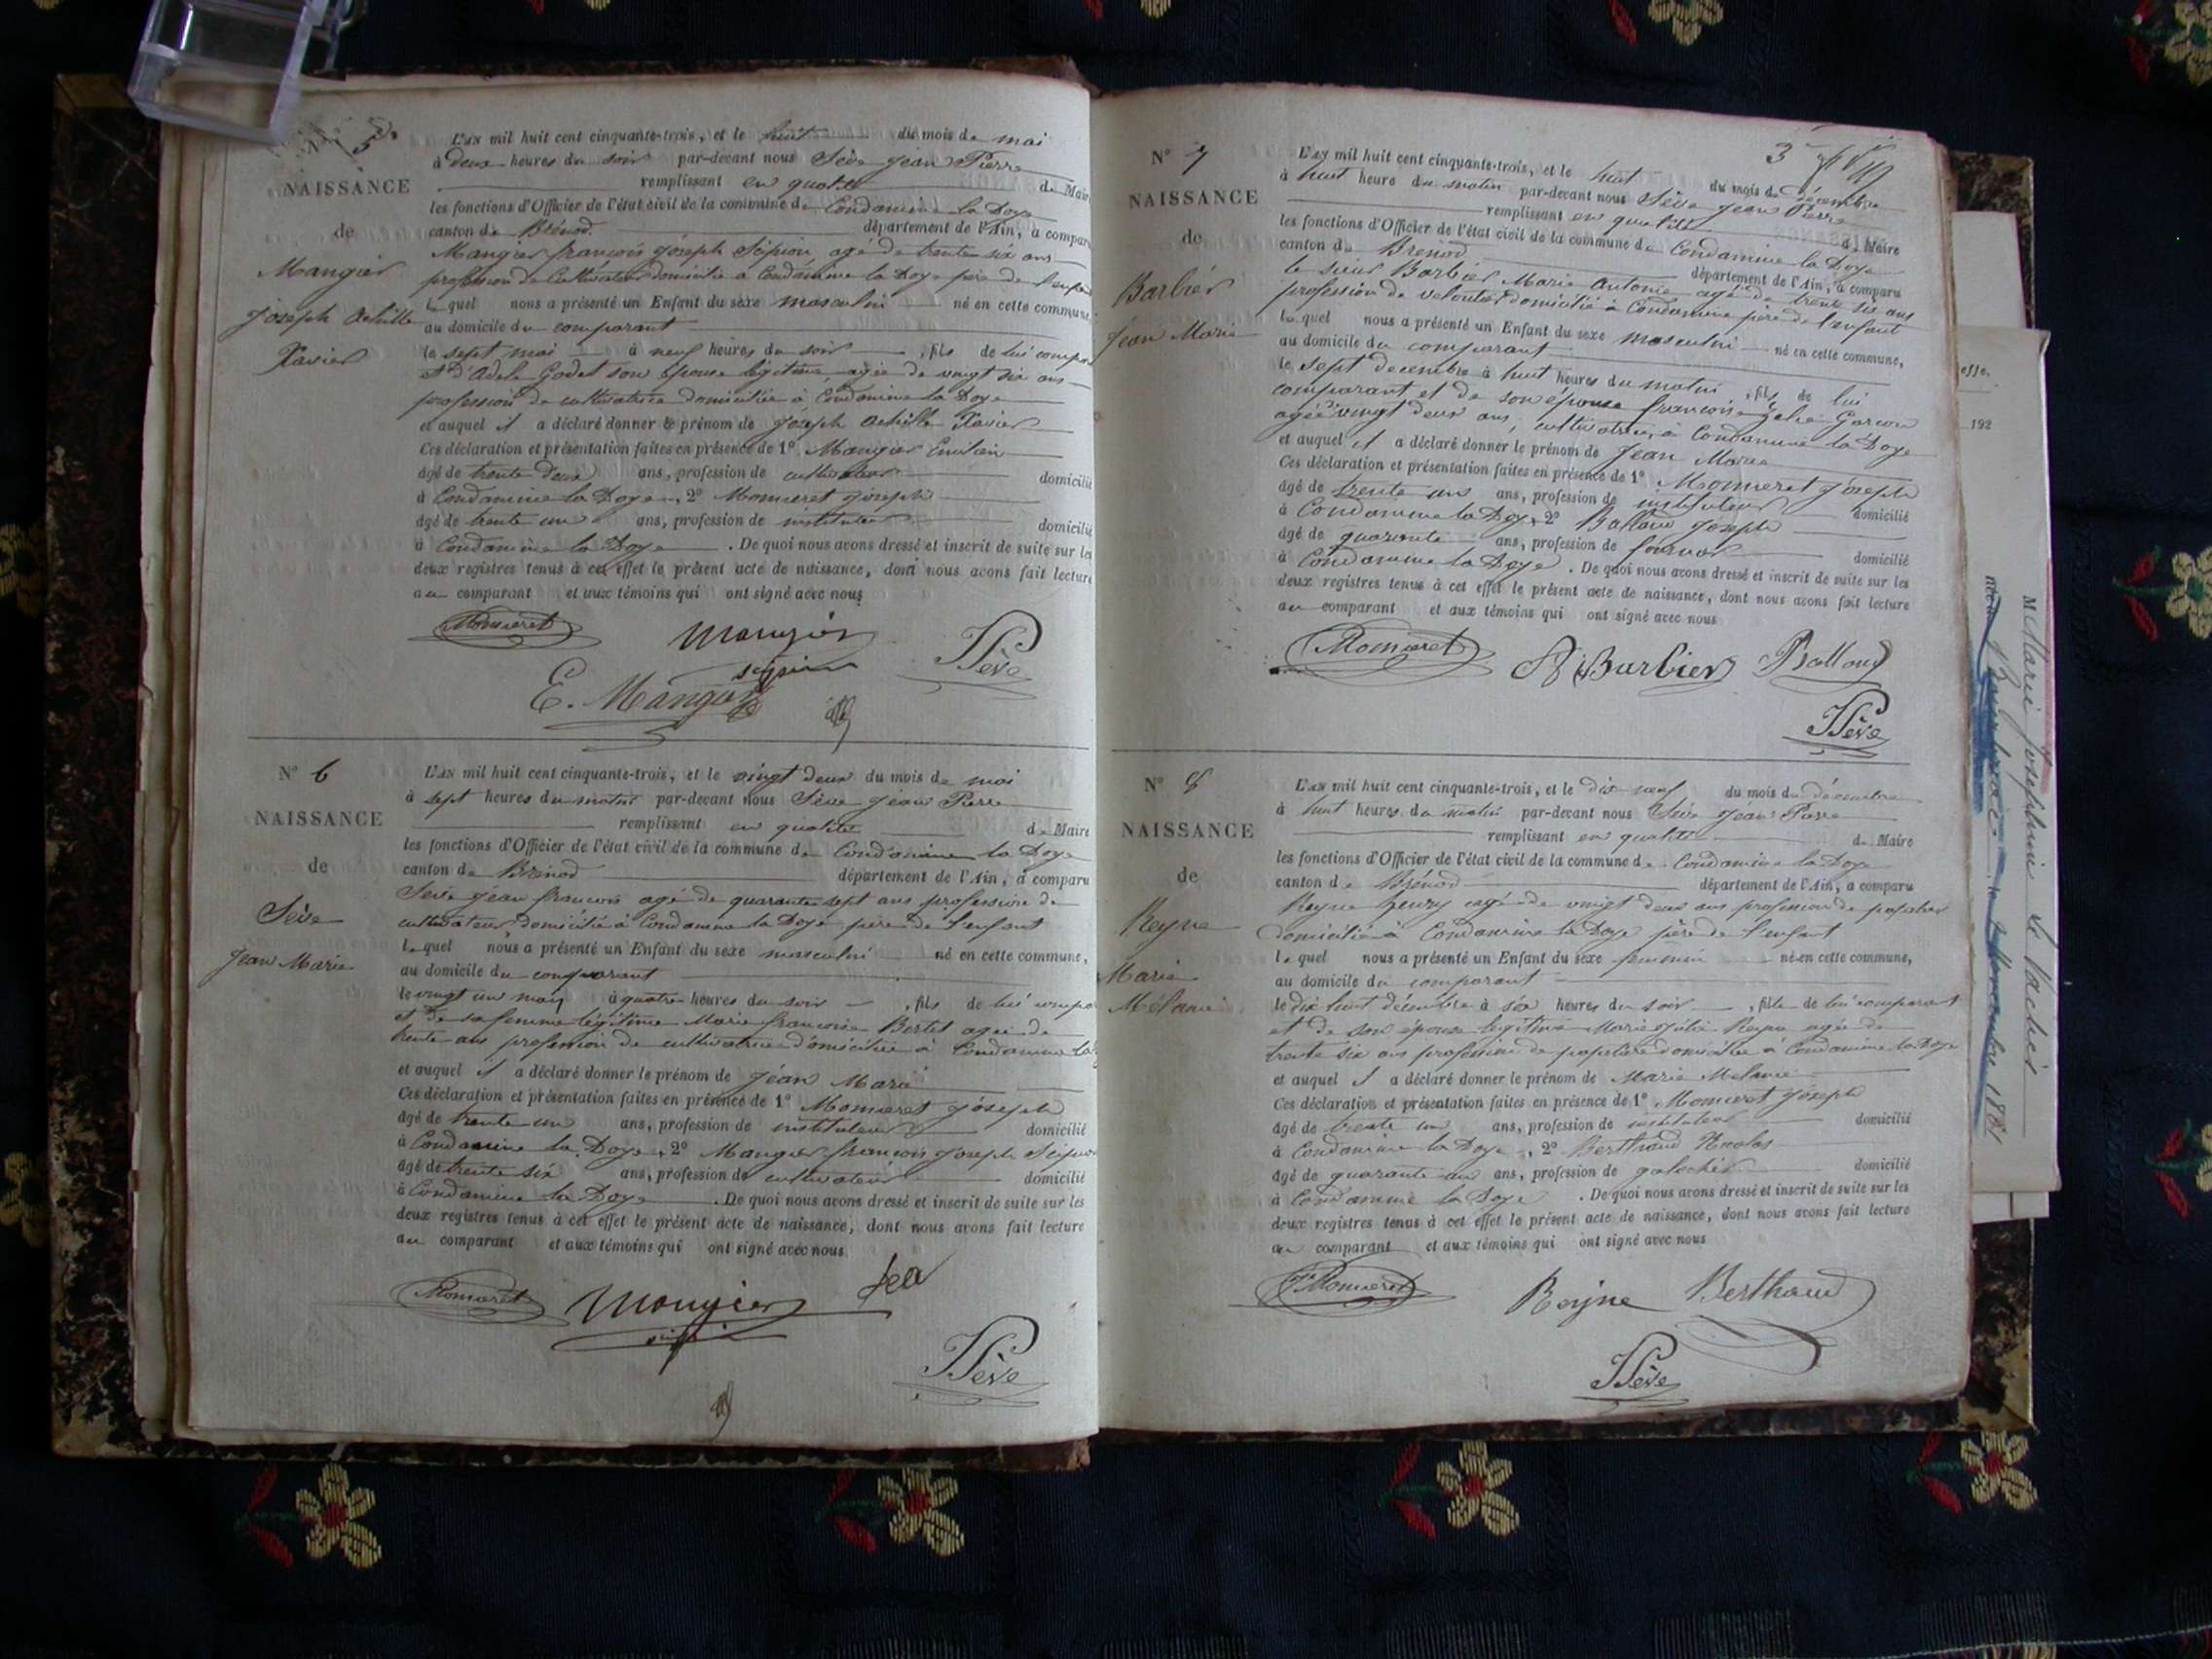 N° 5
NAISSANCE
de
Mangier
Joseph Achille
Xavier
L'an mil huit cent cinquante-trois, et le huit du mois de mai
à deux heures du soir par-devant nous Sève Jean Pierre
remplissant en qualité de Maire
les fonctions d'Officier de l'état civil de la commune de Condamine la Doye
canton de Brénod département de l'Ain, a comparu
Mangier françois Joseph Scipion, agé de trente six ans
profession de Cultivateur domicilié à Condamine la Doye père de l'enfant
lequel nous a présenté un Enfant du sexe masculin né en cette commune,
au domicile du comparant
le sept mai à neuf heures du soir, fils de lui compar
et d'Adele Godet son épouse légitime, agée de vingt six ans
profession de cultivatrice domiciliée à Condamine la Doye
et auquel il a déclaré donner le prénom de Joseph Achille Xavier
Ces déclaration et présentation faites en présence de 1° Mangier Emilien
âgé de trente deux ans, profession de cultivateur domicilié
à Condamine la Doye, 2° Monneret Joseph
âgé de trente un ans, profession de instituteur domicilié
à Condamine la Doye. De quoi nous avons dressé et inscrit de suite sur les
deux registres tenus à cet effet le présent acte de naissance, dont nous avons fait lecture
au comparant et aux témoins qui ont signé avec nous
Monneret Mangier
scipion PSève
E. Mangier
N° 6
NAISSANCE
de
Sève
Jean Marie
L'an mil huit cent cinquante-trois, et le vingt deux du mois de mai
à sept heures du matin par-devant nous Sève Jean Pierre
remplissant en qualité de Maire
les fonctions d'Officier de l'état civil de la commune de Condamine la Doye
canton de Brénod département de l'Ain, a comparu
Sève Jean francois agé de quarante sept ans profession de
cultivateur, domicilié à Condamine la Doye père de l'enfant
lequel nous a présenté un Enfant du sexe masculin né en cette commune,
au domicile du comparant
le vingt un may à quatre heures du soir, fils de lui compa
et de sa femme légitime Marie francoise Bertet agée de
trente ans profession de cultivatrice domiciliée à Condamine la
et auquel il a déclaré donner le prénom de Jean Marie
Ces déclaration et présentation faites en présence de 1° Monneret Joseph
âgé de trente un ans, profession de instituteur domicilié
à Condamine la Doye, 2° Mangier francois Joseph Scipion
âgé de trente six ans, profession de cultivateur domicilié
à Condamine la Doye. De quoi nous avons dressé et inscrit de suite sur les
deux registres tenus à cet effet le présent acte de naissance, dont nous avons fait lecture
au comparant et aux témoins qui ont signé avec nous
Monneret Mangier
PSève
3
N° 7
NAISSANCE
de
Barbier
Jean Marie
L'an mil huit cent cinquante-trois, et le huit du mois de décembre
à huit heure du matin par-devant nous Sève Jean Pierre
remplissant en qualité de Maire
les fonctions d'Officier de l'état civil de la commune de Condamine la Doye
canton de Brénod département de l'Ain, a comparu
le sieur Barbier Marie Antoine agé de trente six ans
profession de veloutier domicilié à Condamine père de l'enfant
lequel nous a présenté un Enfant du sexe masculin né en cette commune,
au domicile du comparant
le sept decembre à huit heures du matin, fils de lui
comparant et de son épouse francoise Zelie Garcon
agée vingt deux ans, cultivatrice, à Condamine la Doye
et auquel il a déclaré donner le prénom de Jean Marie
Ces déclaration et présentation faites en présence de 1° Monneret Joseph
âgé de trente un ans, profession de instituteur domicilié
à Condamine la Doye, 2° Balland Joseph
âgé de quarante ans, profession de domicilié
à Condamine la Doye. De quoi nous avons dressé et inscrit de suite sur les
deux registres tenus à cet effet le présent acte de naissance, dont nous avons fait lecture
au comparant et aux témoins qui ont signé avec nous
Monneret A Barbier Balland
PSève
N° 8
NAISSANCE
de
Reyne
Marie
Mélanie
L'an mil huit cent cinquante-trois, et le dix neuf du mois de décembre
à huit heures du matin par-devant nous Sève Jean Pierre
remplissant en qualité de Maire
les fonctions d'Officier de l'état civil de la commune de Condamine la Doye
canton de Brénod département de l'Ain, a comparu
Reyne henry agé de vingt deux ans profession de papetier
domicilié à Condamine la Doye père de l'enfant
lequel nous a présenté un Enfant du sexe féminin né en cette commune,
au domicile du comparant
le dix huit décembre à six heures du soir, fille de lui comparant
et de son épouse légitime Marie Julie Reyne agée de
trente six ans profession de papetière domiciliée à Condamine la Doye
et auquel il a déclaré donner le prénom de Marie Melanie
Ces déclaration et présentation faites en présence de 1° Monneret Joseph
âgé de trente un ans, profession de instituteur domicilié
à Condamine la Doye, 2° Berthaud Nicolas
âgé de quarante un ans, profession de galochier domicilié
à Condamine la Doye. De quoi nous avons dressé et inscrit de suite sur les
deux registres tenus à cet effet le présent acte de naissance, dont nous avons fait lecture
au comparant et aux témoins qui ont signé avec nous
J Monneret Reyne Berthaud
PSève
esse.
192
M Marie Josephine